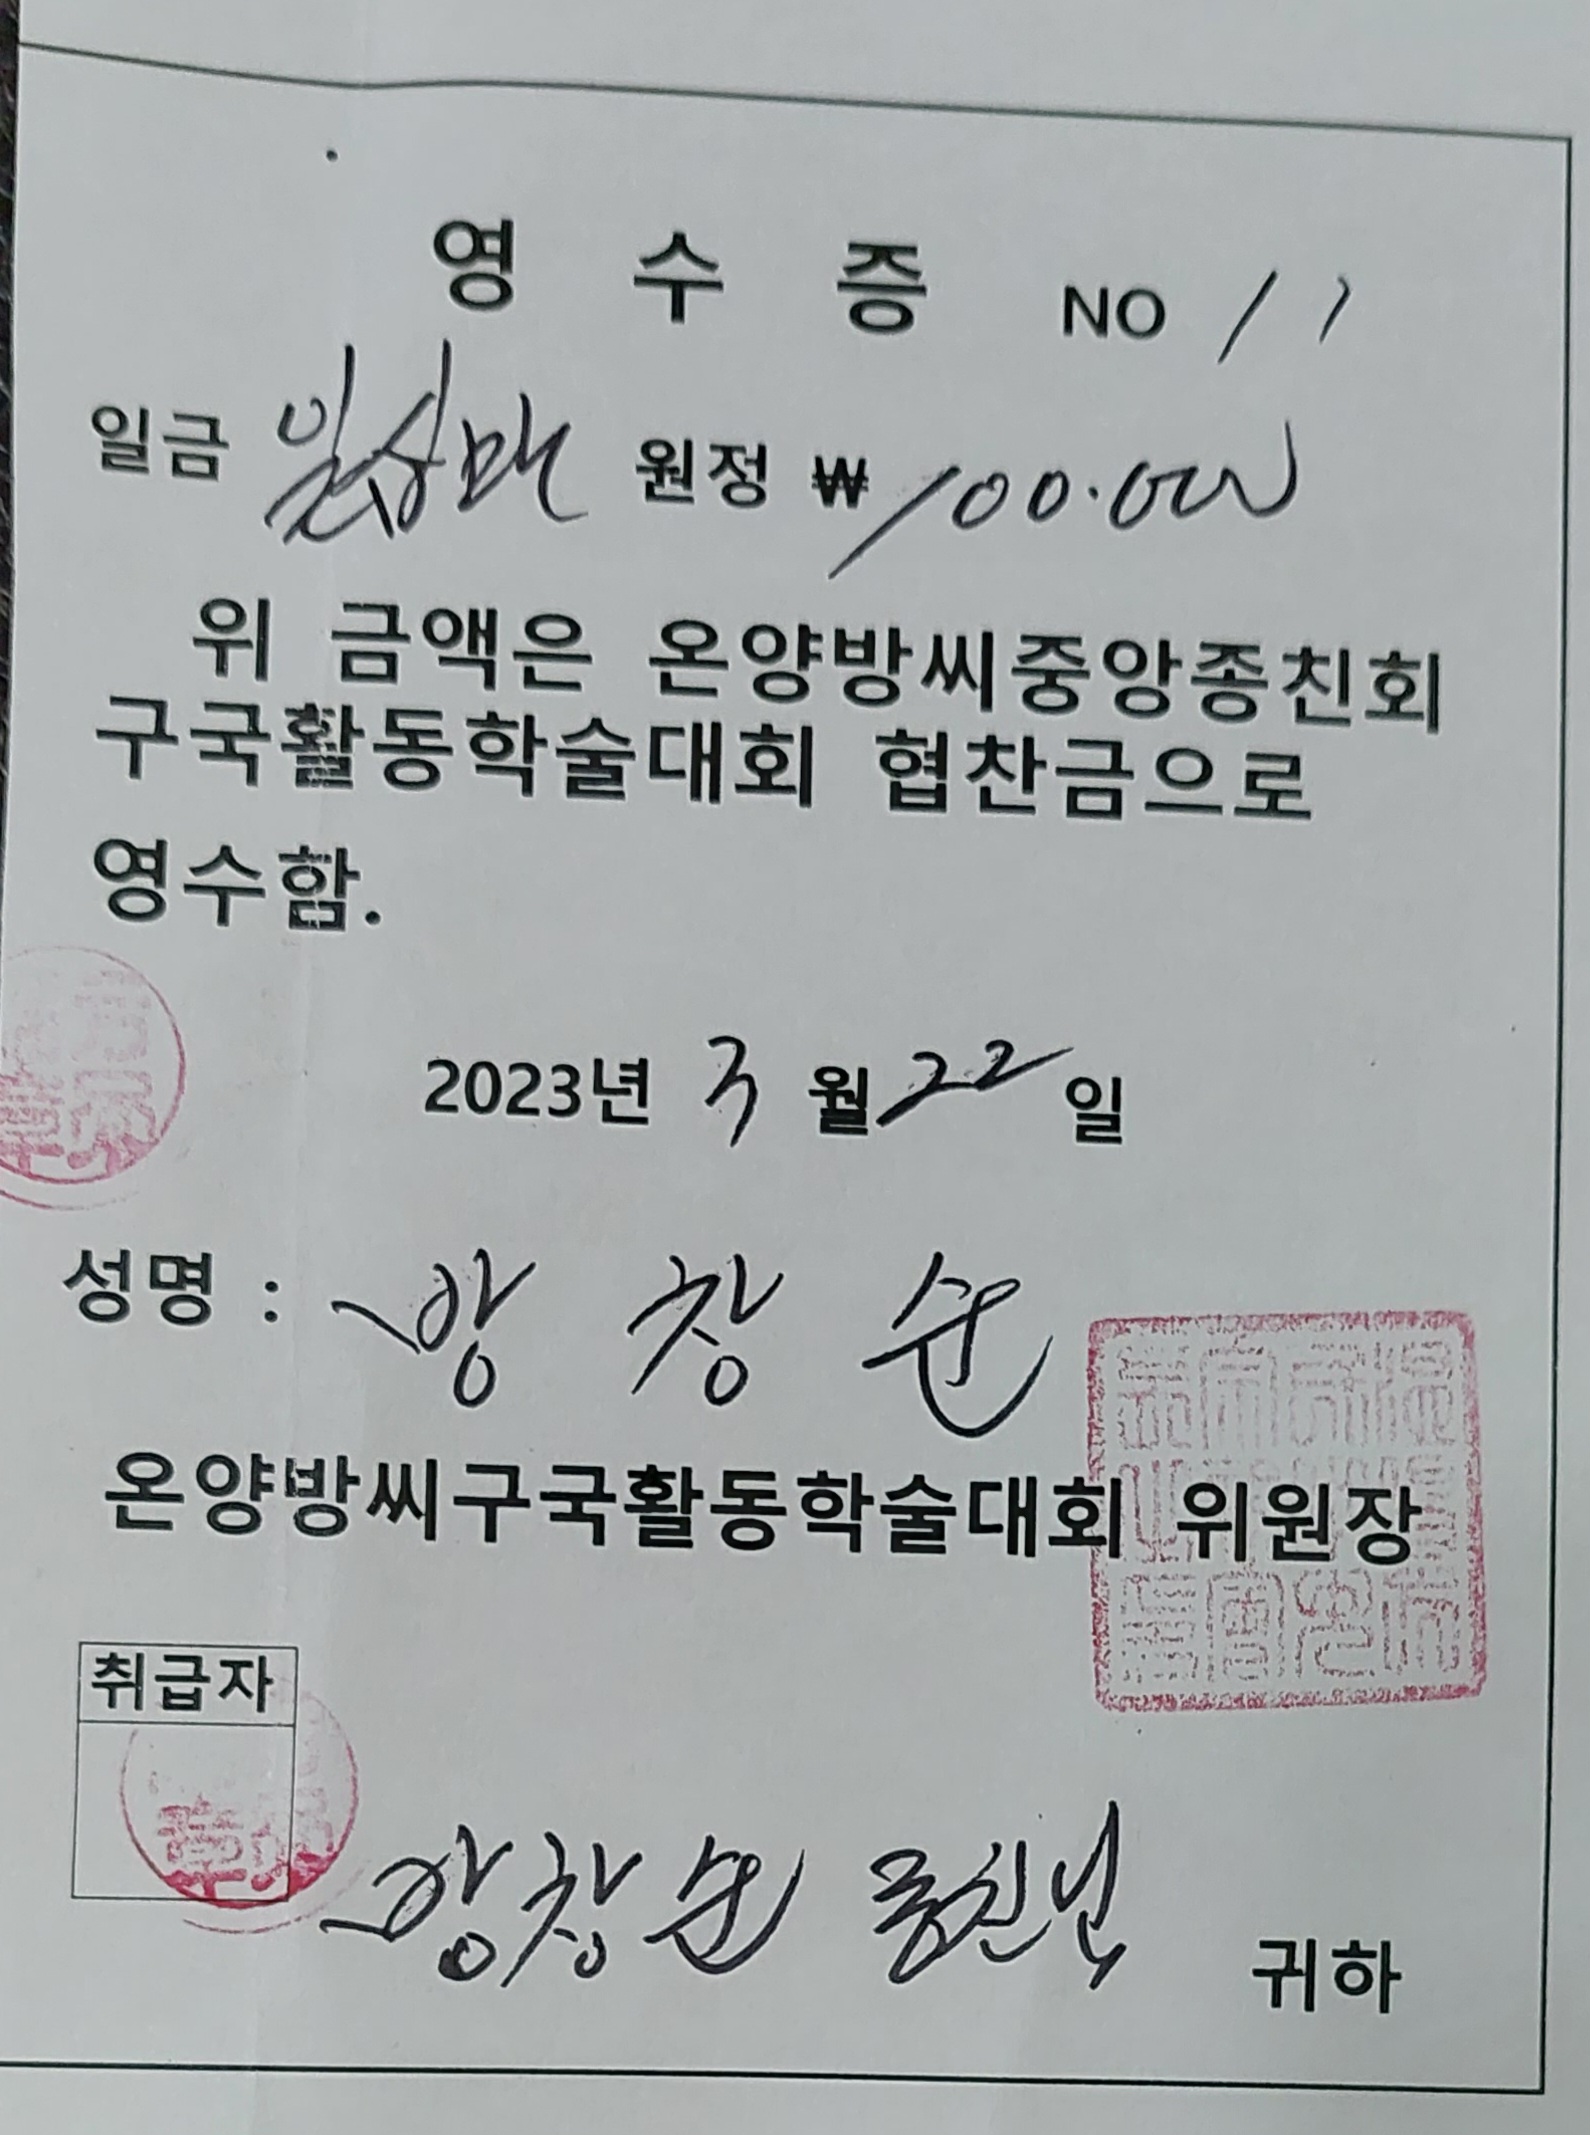 영 수 증 NO 11
일금 일십만 원정 ₩ 100.000
위 금액은 온양방씨중앙종친회
구국활동학술대회 협찬금으로
영수함.
2023년 3월 22일
성명 : 방 창 순
온양방씨구국활동학술대회 위원장
취급자
방창순 종친님 귀하